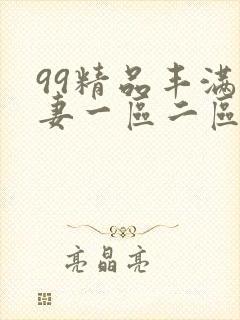 99精品丰滿
妻一區二區
亮晶亮